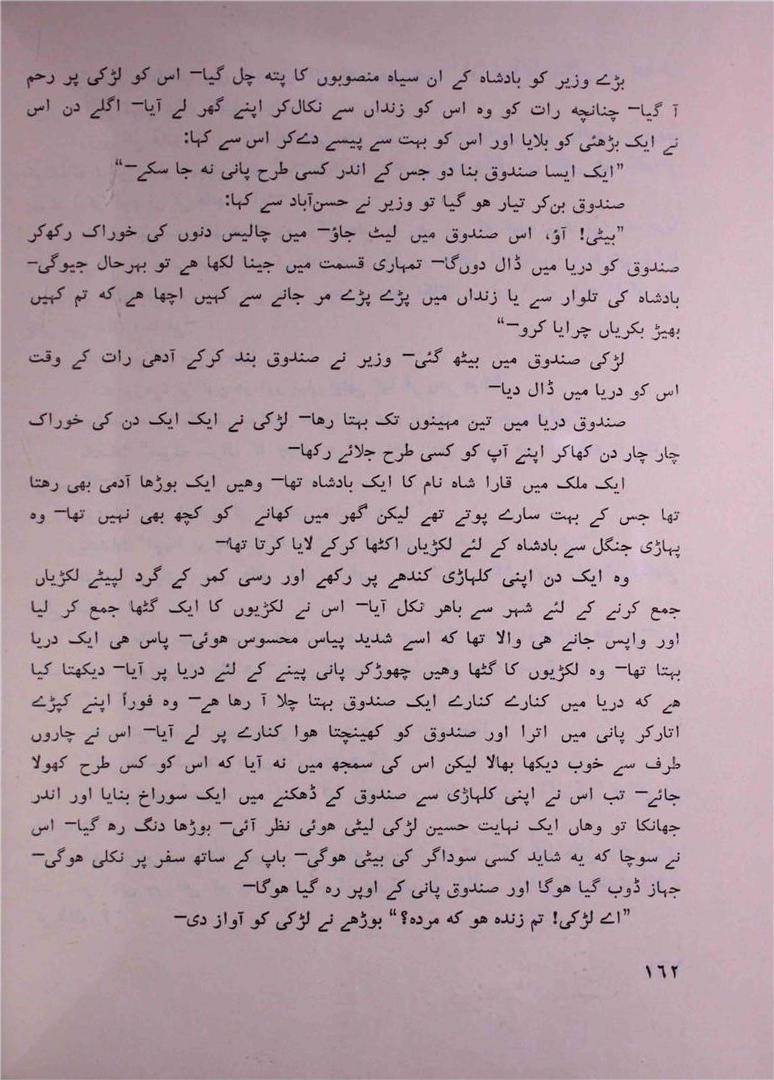 بڑے وزیر کو بادشاہ کے ان سیاہ منصوبوں کا پتہ چل گیا— اس کو لڑکی پر رحم
آ گیا— چنانچہ رات کو وہ اس کو زنداں سے نکال‌کر اپنے گھر لے آیا— اگلے دن اس
نے ایک بڑھئی کو بلایا اور اس کو بہت سے پیسے دےکر اس سے کہا:
”ایک ایسا صندوق بنا دو جس کے اندر کسی طرح پانی نہ جا سکے—“
صندوق بن‌کر تیار ہو گیا تو وزیر نے حسن‌آباد سے کہا:
”بیٹی! آؤ، اس صندوق میں لیٹ جاؤ— میں چالیس دنوں کی خوراک رکھ‌کر
صندوق کو دریا میں ڈال دوں‌گا— تمہاری قسمت میں جینا لکھا ہے تو بہرحال جیوگی—
بادشاہ کی تلوار سے یا زنداں میں پڑے پڑے مر جانے سے کہیں اچھا ہے کہ تم کہیں
بھیڑ بکریاں چرایا کرو—“
لڑکی صندوق میں بیٹھ گئی— وزیر نے صندوق بند کرکے آدھی رات کے وقت
اس کو دریا میں ڈال دیا—
صندوق دریا میں تین مہینوں تک بہتا رہا— لڑکی نے ایک ایک دن کی خوراک
چار چار دن کھاکر اپنے آپ کو کسی طرح جلائے رکھا—
ایک ملک میں قارا شاہ نام کا ایک بادشاہ تھا— وہیں ایک بوڑھا آدمی بھی رہتا
تھا جس کے بہت سارے پوتے تھے لیکن گھر میں کھانے کو کچھ بھی نہیں تھا— وہ
پہاڑی جنگل سے بادشاہ کے لئے لکڑیاں اکٹھا کرکے لایا کرتا تھا—
وہ ایک دن اپنی کلہاڑی کندھے پر رکھے اور رسی کمر کے گرد لپیٹے لکڑیاں
جمع کرنے کے لئے شہر سے باہر نکل آیا— اس نے لکڑیوں کا ایک گٹھا جمع کر لیا
اور واپس جانے ہی والا تھا کہ اسے شدید پیاس محسوس ہوئی— پاس ہی ایک دریا
بہتا تھا— وہ لکڑیوں کا گٹھا وہیں چھوڑکر پانی پینے کے لئے دریا پر آیا— دیکھتا کیا
ہے کہ دریا میں کنارے کنارے ایک صندوق بہتا چلا آ رہا ہے— وہ فوراً اپنے کپڑے
اتارکر پانی میں اترا اور صندوق کو کھینچتا ہوا کنارے پر لے آیا— اس نے چاروں
طرف سے خوب دیکھا بھالا لیکن اس کی سمجھ میں نہ آیا کہ اس کو کس طرح کھولا
جائے— تب اس نے اپنی کلہاڑی سے صندوق کے ڈھکنے میں ایک سوراخ بنایا اور اندر
جھانکا تو وہاں ایک نہایت حسین لڑکی لیٹی ہوئی نظر آئی— بوڑھا دنگ رہ گیا— اس
نے سوچا کہ یہ شاید کسی سوداگر کی بیٹی ہوگی— باپ کے ساتھ سفر پر نکلی ہوگی—
جہاز ڈوب گیا ہوگا اور صندوق پانی کے اوپر رہ گیا ہوگا—
”اے لڑکی! تم زندہ ہو کہ مردہ؟“ بوڑھے نے لڑکی کو آواز دی—
۱۶۲